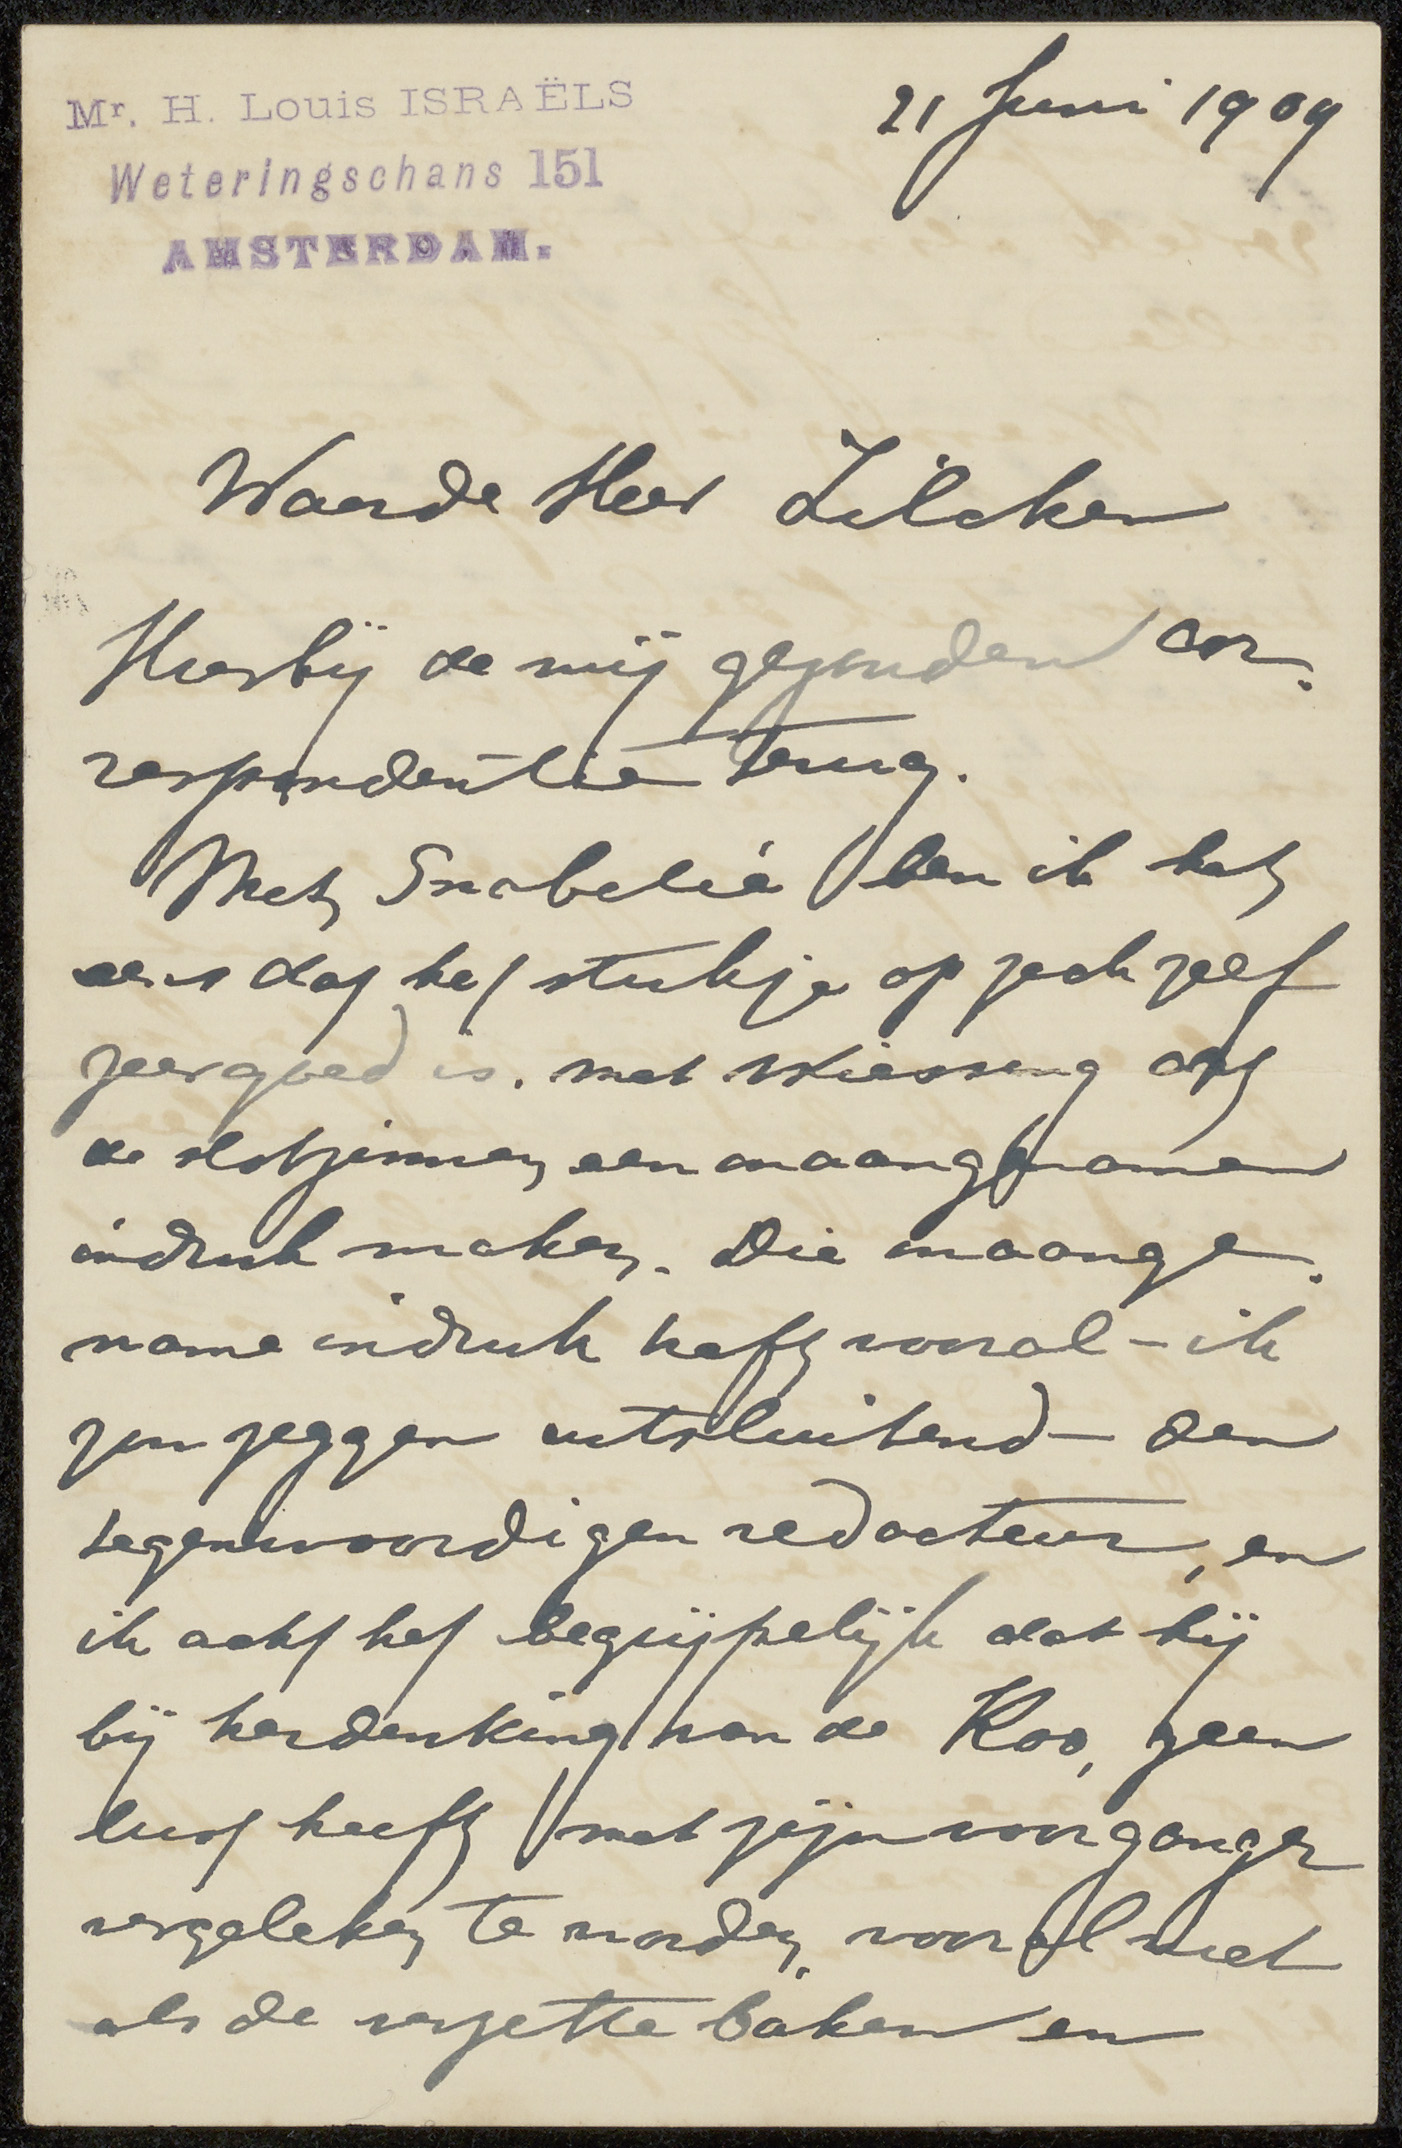 Mr. H. Louis ISRAËLS
Weteringschans 151
AMSTERDAM.
21 Juni 1909
Waarde Heer Zilcken
Hierbij de mij gezonden cor-
respondentie terug.
Met Snabelié ben ik het
eens dat het stukje op zich zelf
zeer goed is. met Wiessing dat
de slotzinnen een onaangenamen
indruk maken. Die onaange-
name indruk heeft vooral - ik
zou zeggen uitsluitend - den
tegenwoordigen redacteur, en
ik acht het begrijpelijk dat hij
bij herdenking van de Koo, geen
lust heeft met zijn voorganger
vergeleken te worden, vooral niet
als de verzette baken en